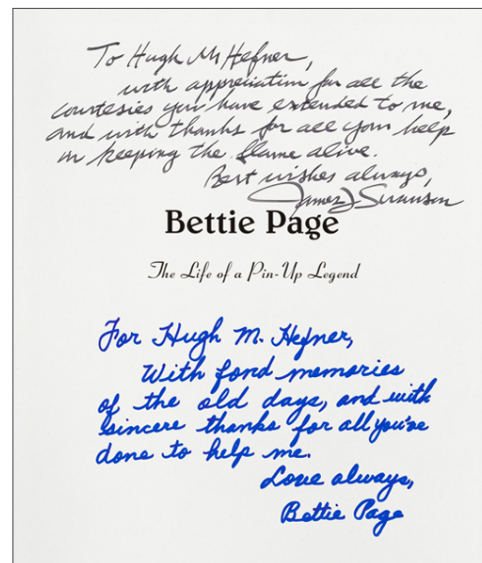 To Hugh M. Hefner,
with appreciation for all the
courtesies you have extended to me,
and with thanks for all your help
in keeping the flame alive.
Best wishes always,
James L Swanson
Bettie Page
The Life of a Pin-Up Legend
For Hugh M. Hefner,
With fond memories
of the old days, and with
sincere thanks for all you've
done to help me.
Love always,
Bettie Page